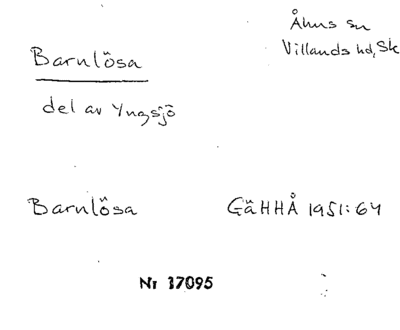 Åhus sn
Villands hd, Sk
Barnlösa
del av Yngsjö
Barnlösa GäHHÅ 1951:64
Nr 37095